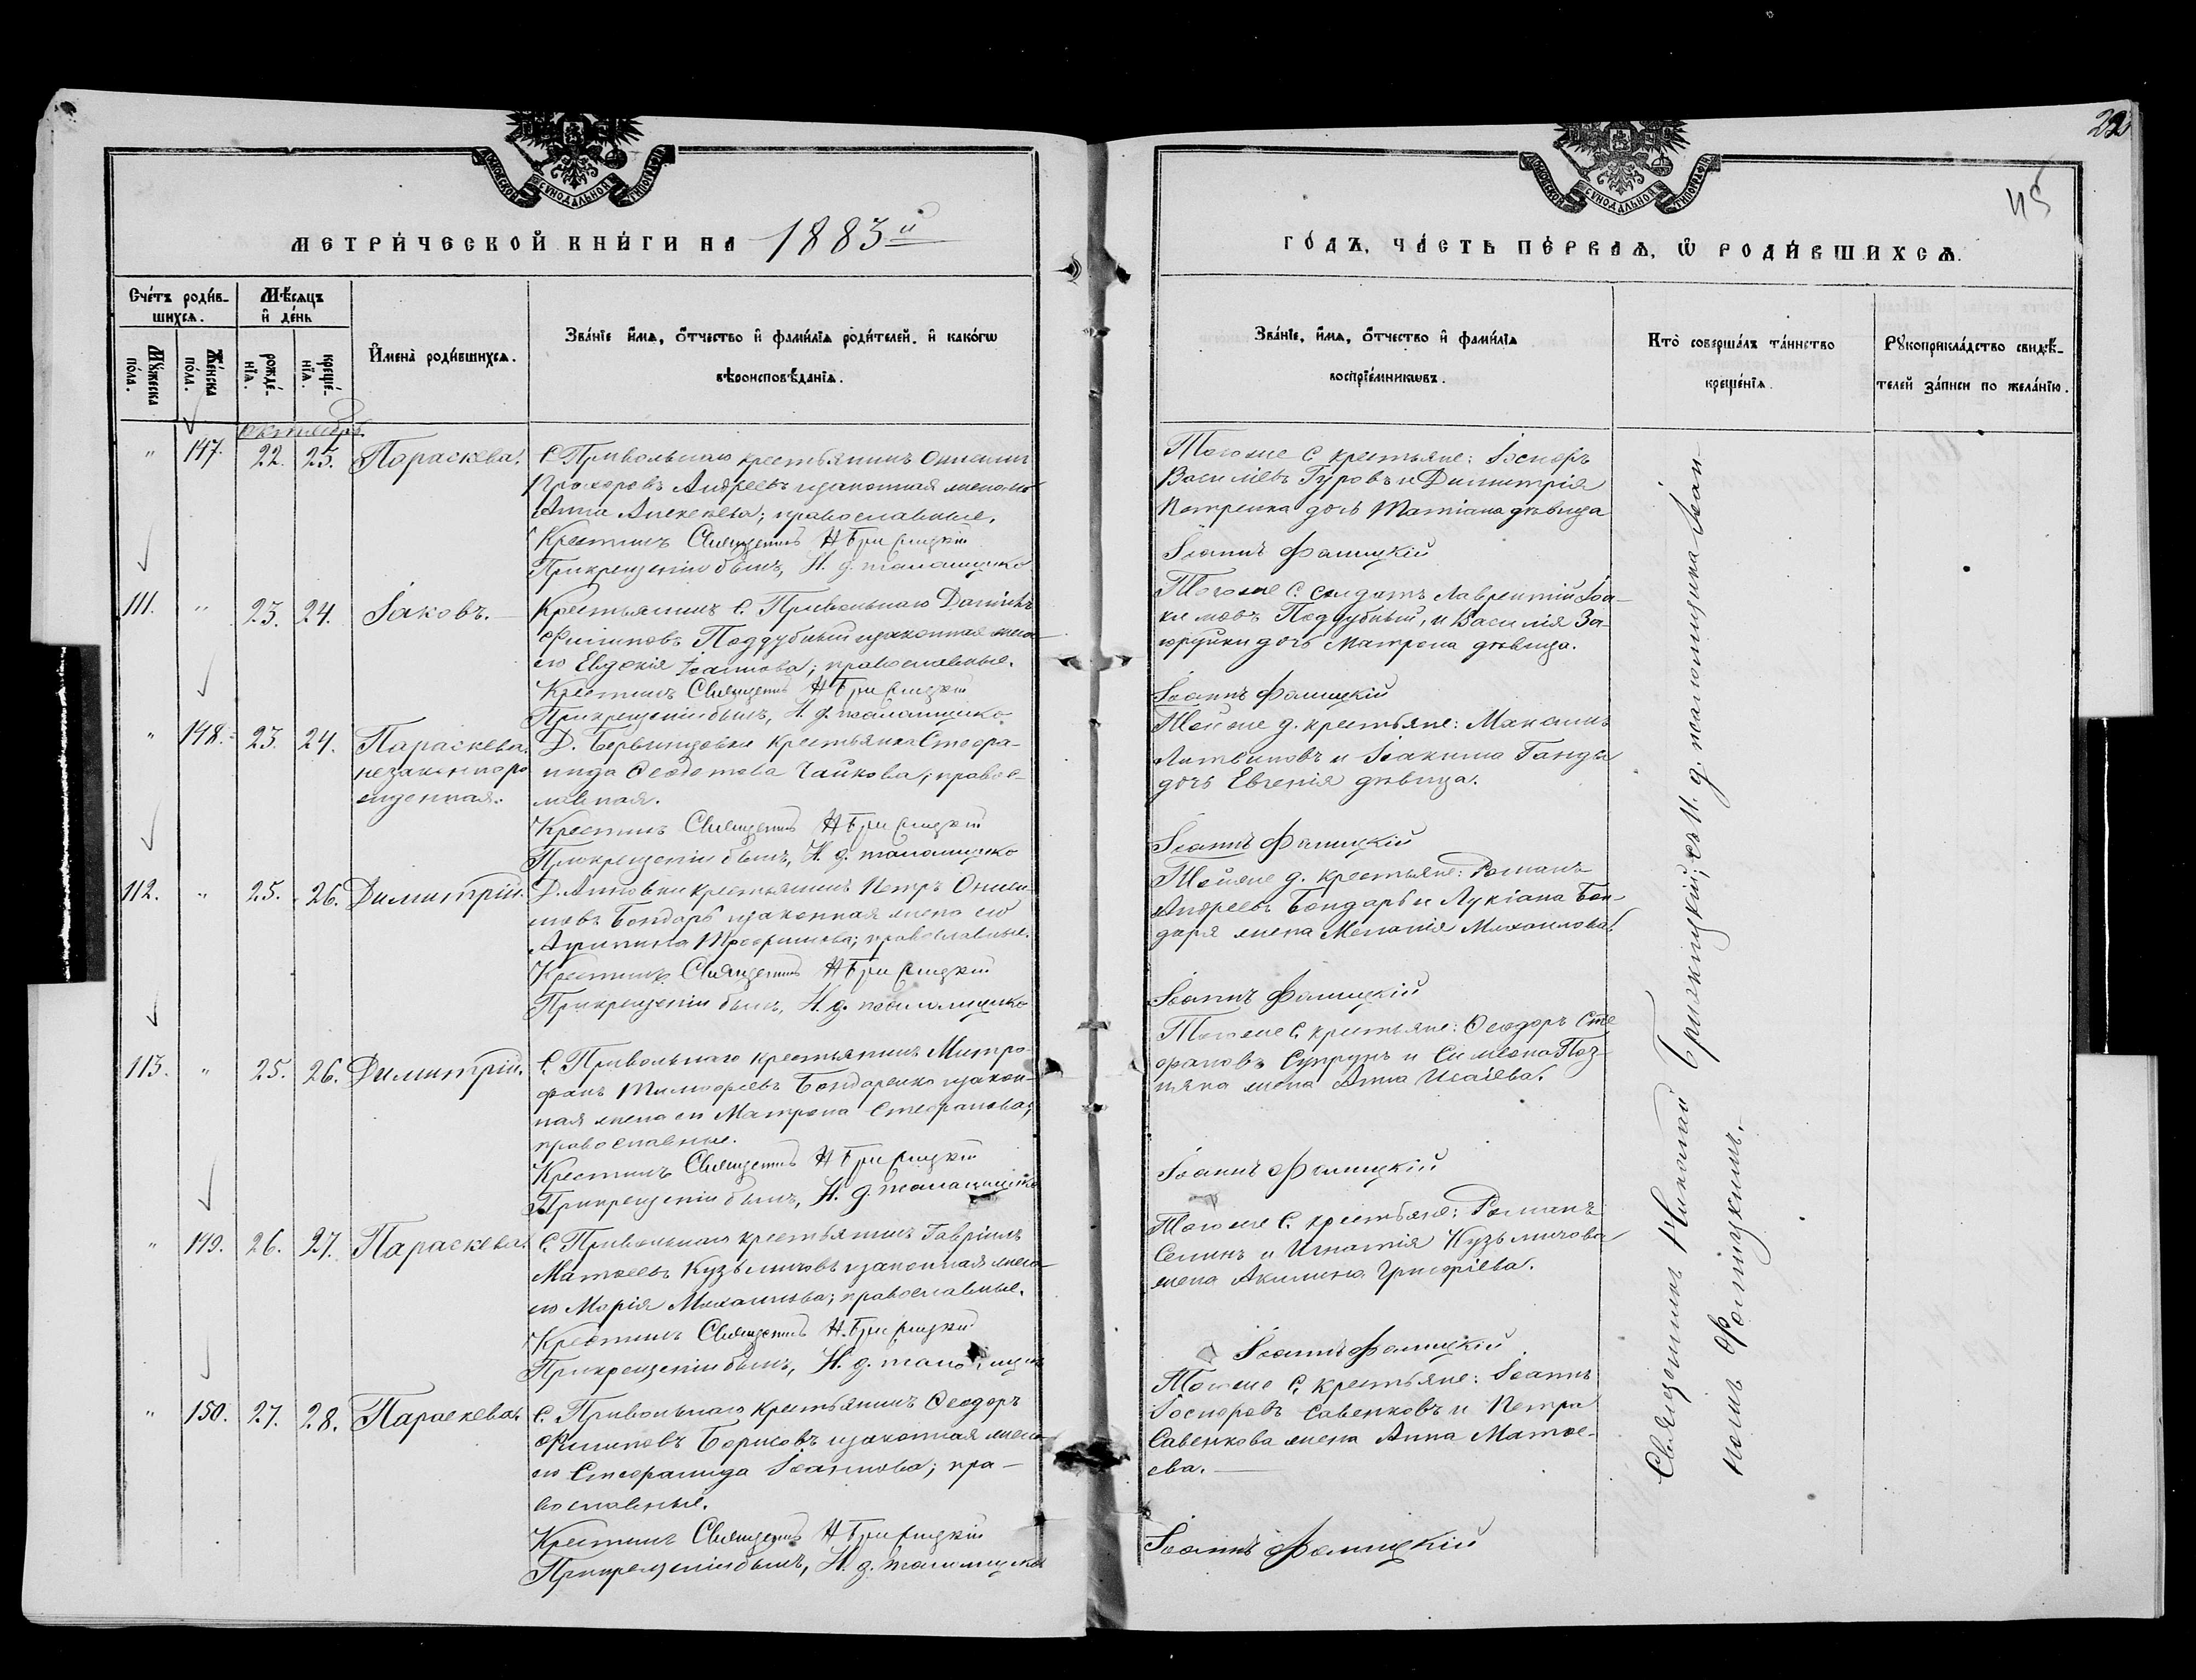 22
45
МЕТРИ́ЧЕСКОЙ КНИ́ГИ НА 1883й
ГО́ДЪ, ЧА́СТЬ ПЕ́РВАѦ, Ѡ҆ РОДИ́ВШИХСѦ.
Сче́тъ роди́в-
шихсѧ.
Мꙋ́жеска
по́ла.
Же́нска
по́ла.
Мѣ́сѧцъ
и҆ де́нь
рожде́-
нїѧ.
креще́-
нїѧ.
И҆мена̀ роди́вшихсѧ.
Зва́нїе и҆́мѧ, ѻ҆́тчество и҆ фами́лїѧ роди́телей, и҆ како́гѡ
вѣроисповѣ́данїѧ.
Зва́нїе, и҆́мѧ, ѻ҆́тчество и҆ фами́лїѧ
воспрїе́мникѡвъ.
Кто̀ соверша́лъ та́инство
креще́нїѧ.
Рꙋкоприкла́дство свидѣ́-
телей за́писи по жела́нїю.
Октябрь.
" 147. 22. 25. Параскева.
С. Привольнаго крестьянинъ Онисим
Прохоровъ Андреевъ и законная жена его
Анна Алексеева; православные.
Крестилъ Священникъ Н Бржесицкій
При крещеніи былъ, И. д. псаломщика
Тогоже С крестьяне: Іосифъ
Василіевъ Гуровъ и Димитрія
Петренка дочь Татіана дѣвица
Іоаннъ Фалицкій
111. " 23. 24. Іаковъ.
Крестьянинъ С. Привольнаго Даніилъ
Филиповъ Поддубный и законная жена
его Евдокія Іоаннова; православные.
Крестилъ Священникъ Н Бржесицкій
При крещеніи былъ, И. д. псаломщика
Тогоже С. Солдатъ Лаврентій Іоа-
кимовъ Поддубный, и Василія За-
дочь Матрона дѣвица.
Іоаннъ Фалицкій
" 148. 23. 24. Параскева.
незаконноро
жденная.
Д. крестьянка Стефа-
нида Феодотова Чайкова; правос-
лавная.
Крестилъ Священникъ Н Бржесицкій
При крещеніи былъ, И. д. псаломщика
Тойже д. крестьяне: Максимъ
Литвиновъ и Іоакима Ганды
дочь Евгенія дѣвица.
Іоаннъ Фалицкій
112. " 25. 26. Димитрій.
Д. Анновки крестьянинъ ПетръОниси-
мовъ Бондарь и законная жена его
Агрипина Трофимова; православные.
Крестилъ Священникъ Н Бржесицкій
При крещеніи былъ, И. д. псаломщика
Тойже д. крестьяне: Романъ
Андреевъ Бондарь и Лукіана Бон-
даря жена Меланія Михаилова.
Іоаннъ Фалицкій
113. " 25. 26. Димитрій.
С. Привольнаго крестьянинъ Митро-
фанъ Тимофеевъ Бондаренко и закон-
ная жена его Матрона Стефанова;
православные.
Крестилъ Священникъ Н Бржесицкій
При крещеніи былъ, И. д. псаломщика
Тогоже С. крестьяне: Феодоръ Сте
фановъ Супрунъ и Симеона Поз-
няка жена Анна Исаіева.
Іоаннъ Фалицкій
" 149. 26. 27. Параскева.
С. Привольнаго крестьянинъ Гавріилъ
Матвеевъ Кузьмичовъ и законная жена
его Марія Михаилова; православные.
Крестилъ Священникъ Н. Бржесицкій
При крещеніи былъ, И. д.
Тогоже С. крестьяне: Романъ
Селинъ и Игнатія Кузьмичова
жена Акилина Григоріева.
Іоаннъ Фалицкій
" 150. 27. 28. Параскева.
С. Привольнаго крестьянинъ Феодоръ
Филиповъ Борисовъ и законная жена
его Стефанида Іоаннова; пра-
вославные.
Крестилъ Священникъ Н Бржесицкій
При крещеніи былъ, И. д. псаломщика
Тогоже С. крестьяне: Іоаннъ
Іосифовъ Савенковъ и Петра
Савенкова жена Анна Матве-
ева.
Іоаннъ Фалицкій
Священникъ Николай Бржесицкій; съ И. д. псаломщика Іоан-
номъ Фалицкимъ.